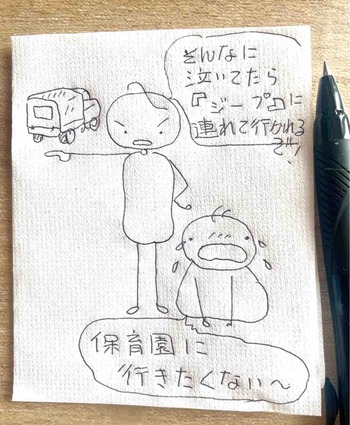 そんなに
泣いてたら
『ジープ』に
連れて行かれる
ぞ!
保育園に
行きたくない〜